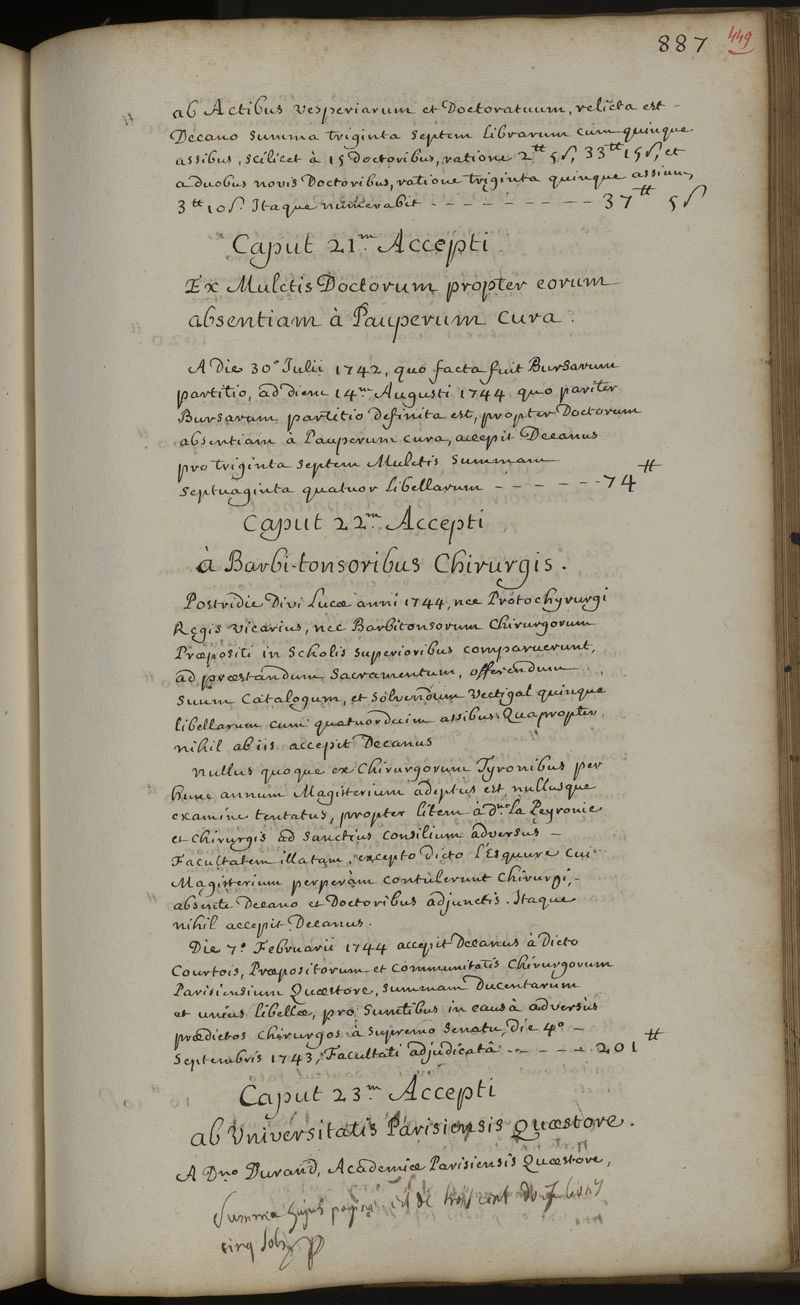 887 449
ab Actibus vesperiarum et Doctoratuum, relicta est -
Decano summa triginta septem librarum cum quinque
assibus, scilicet à 15 Doctoribus, ratione 2tt 5s, 33tt 15s, et
a duobus novis Doctoribus, ratione triginta quinque assium,
3tt 10s. Itaque numerabit - - - - - - - - - 37tt 5s
Caput 21m Accepti
Ex Mulctis Doctorum propter eorum
absentiam à Pauperum cura.
A Die 30a Julii 1742, quo facta fuit Bursarum
partitio, ad diem 14m Augusti 1744 quo pariter
Bursarum partitio definita est, propter Doctorum
absentiam à Pauperum cura, accepit Decanus
pro triginta septem Mulctis summam
septuaginta quatuor libellarum - - - - - - 74tt
Caput 22m Accepti
à Barbi-tonsoribus Chirurgis.
Postridie Divi Lucæ anni 1744, nec Protochyrurgi
Regis vicarius, nec Barbitonsorum Chirurgorum
Præpositi in Scholis superioribus comparuerunt,
ad præstandum sacramentum, offerendum
suum Catalogum, et solvendum vectigal quinque
libellarum cum quatuordecim assibus. Quapropter
nihil ab iis accepit Decanus
nullus quoque ex Chirurgorum Tyronibus per
hunc annum Magisterium adeptus est nullusque
examine tentatus, propter litem à D.no La Peyronie
et Chirurgis ad sanctius Consilium adversus -
Facultatem illatam, excepto Dicto L'Esquure cui
Magisterium perperàm contulerunt Chirurgi, -
absente Decano et Doctoribus adjunctis. Itaque
nihil accepit Decanus.
Die 7a Februarii 1744 accepit Decanus à Dicto
Courtois, Præpositorum et communitatis Chirurgorum
Parisiensium Quæstore, summam Ducentarum
et unius libellæ, pro sumtibus in causâ adversùs
prædictos Chirurgos à supremo senatu, Die 4a -
septembris 1743, Facultati adjudicatâ - - - - - 201tt
Caput 23m Accepti
ab Universitatis Parisiensis Quæstore.
A Dno Durand, Academiæ Parisiensis Quæstore,
Summa hujus paginæ est de trois cent douze livres
cinq sols